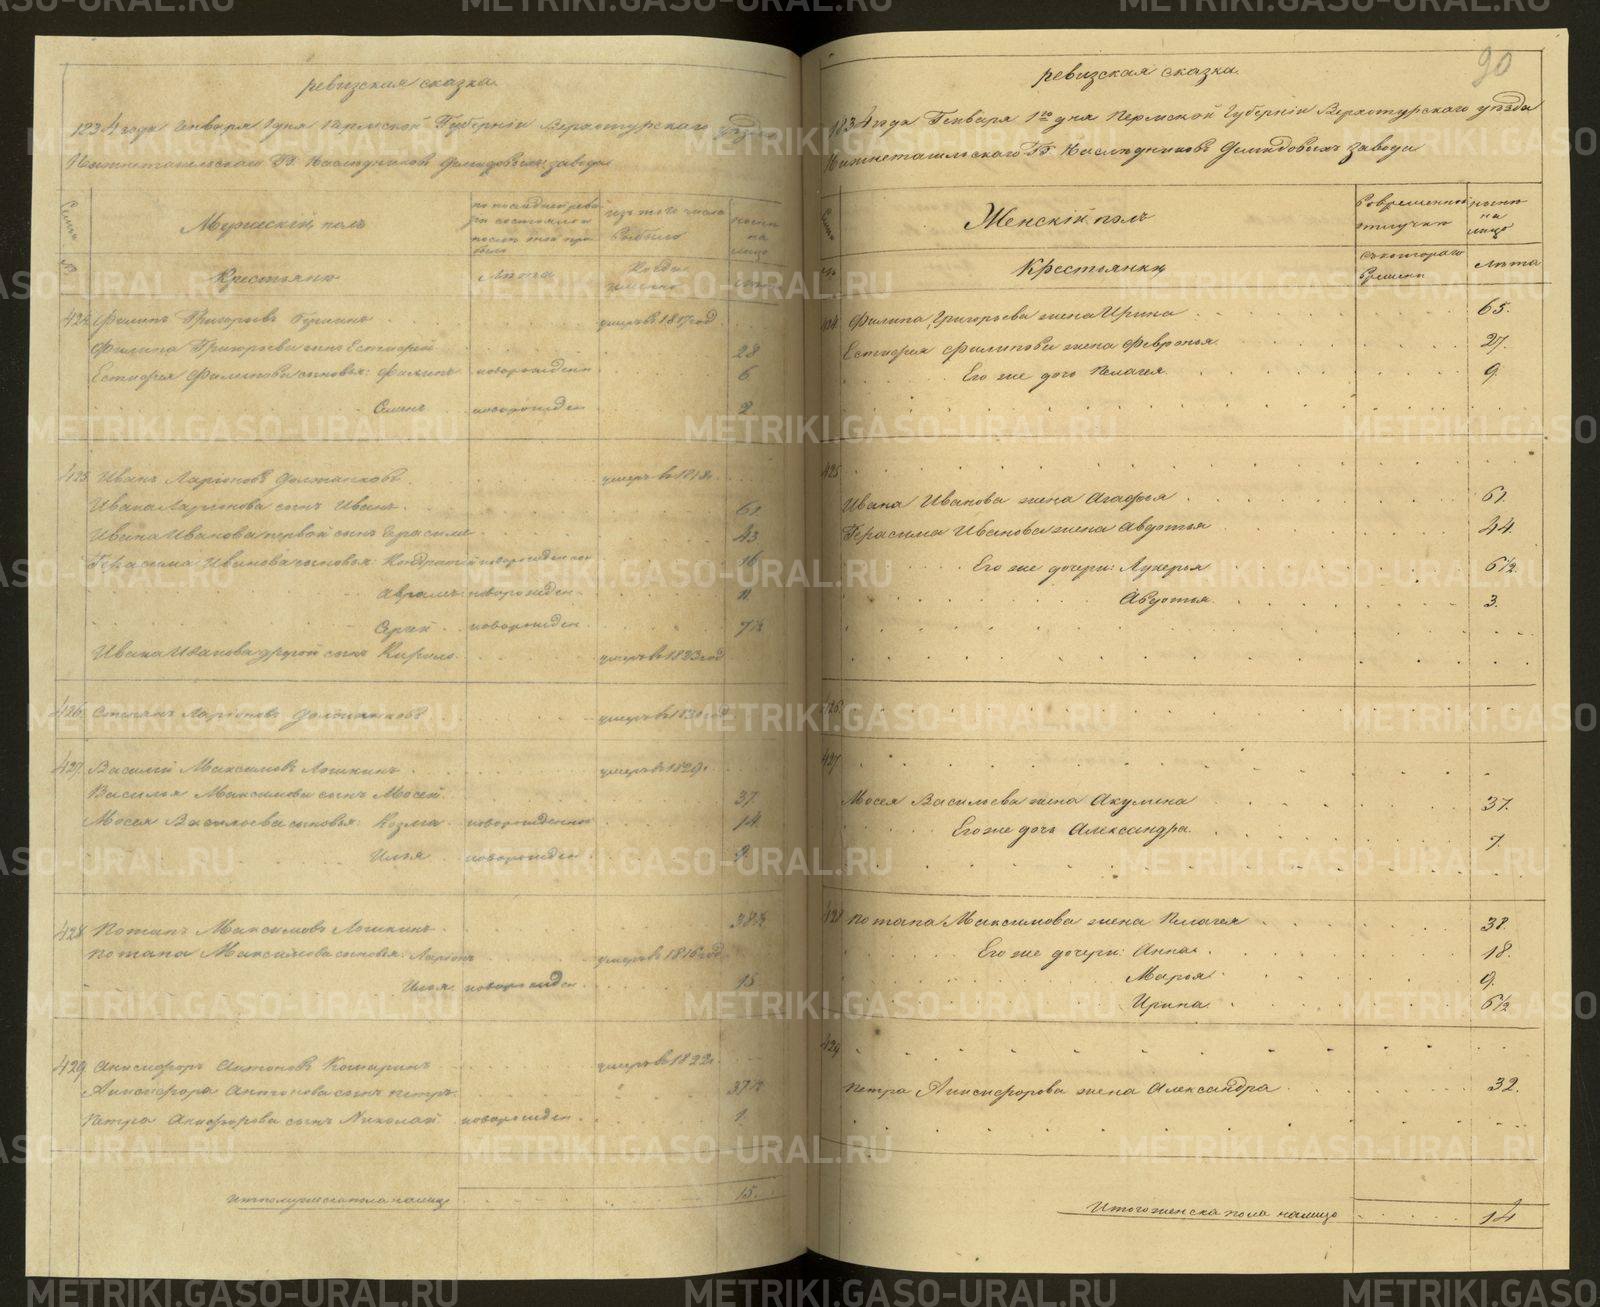 ревизская сказка.
1834 года Генваря 1 дня Пермской Губерніи Верхотурскаго уѣзда
Нижнетагильскаго Гг. Наслѣдников Демидовыхъ завода
Семьи
Мужескій полъ
по последней реви-
зіи состояло и
после той при-
было
изъ того числа
выбыло
нынѣ
на
лицо
№
Крестьянъ
Лѣта
Когда
именно
лѣта
424 Филипъ Григорьевъ умеръ в 1817 год
Филипа Григорьева сынъ Естифей 28
Естифея Филипова сыновья: Филипъ новорожден 6
Семенъ новорожден 2.
425 Иванъ Ларіоновъ умеръ в
Ивана Ларіонова сынъ Иванъ. 61
Ивана Иванова первой сынъ Герасимъ 43
Герасима Иванова сыновья: Кондратей новорожден 16
Аврамъ новорожден. 11.
Сергей новорожден 7½
Ивана Иванова другой сынъ Кирило. умеръ в 1833 год
426. Степанъ Ларіоновъ умеръ в 1830 год
427. Василий Максимовъ Лошкинъ умеръ в 1829.
Василья Максимова сынъ Мосей. 37.
Мосея Васильева сыновья: Козма новорожденно 14.
Илья новорожден 9.
428 Потапъ Максимовъ Лошкинъ. 38½
Потапа Максимова сыновья: Ларіон умеръ в 1816 год
Илья новорожден 15
429. Анисифоръ Антоновъ Комаринъ умеръ в 1822.
Анисифора Антонова сынъ Петръ. 37½
Петра Анисифорова сынъ Николай новорожден. 1.
Итого мужеска пола налицо 15.
90
ревизская сказка.
1834 года Генваря 1го дня Пермской Губерніи Верхотурскаго уѣзда
Нижнетагильскаго Гг. Наслѣдниковъ Демидовыхъ завода
Семьи
Женскій полъ
Во временной
отлучкѣ
нынѣ
на
лицо
№
Крестьянки
съ котораго
времени
лѣта
424. Филипа Григорьева жена Ирина 65.
Естифея Филипова жена Февронья 27.
Его же дочь Пелагея. 9.
425
Ивана Иванова жена Агафья 61.
Герасима Иванова жена Авдотья 44.
Его же дочери: Лукерья 6½.
Авдотья. 3.
426.
427.
Мосея Васильева жена Акулина 37.
Его же дочь Александра. 7.
428 Потапа Максимова жена Пелагея 38.
Его же дочери: Анна. 18.
Марья. 9.
Ирина. 6½
429
Петра Анисифорова жена Александра 32.
Итого женска пола налицо 14
METRIKI.GASO-URAL.RU